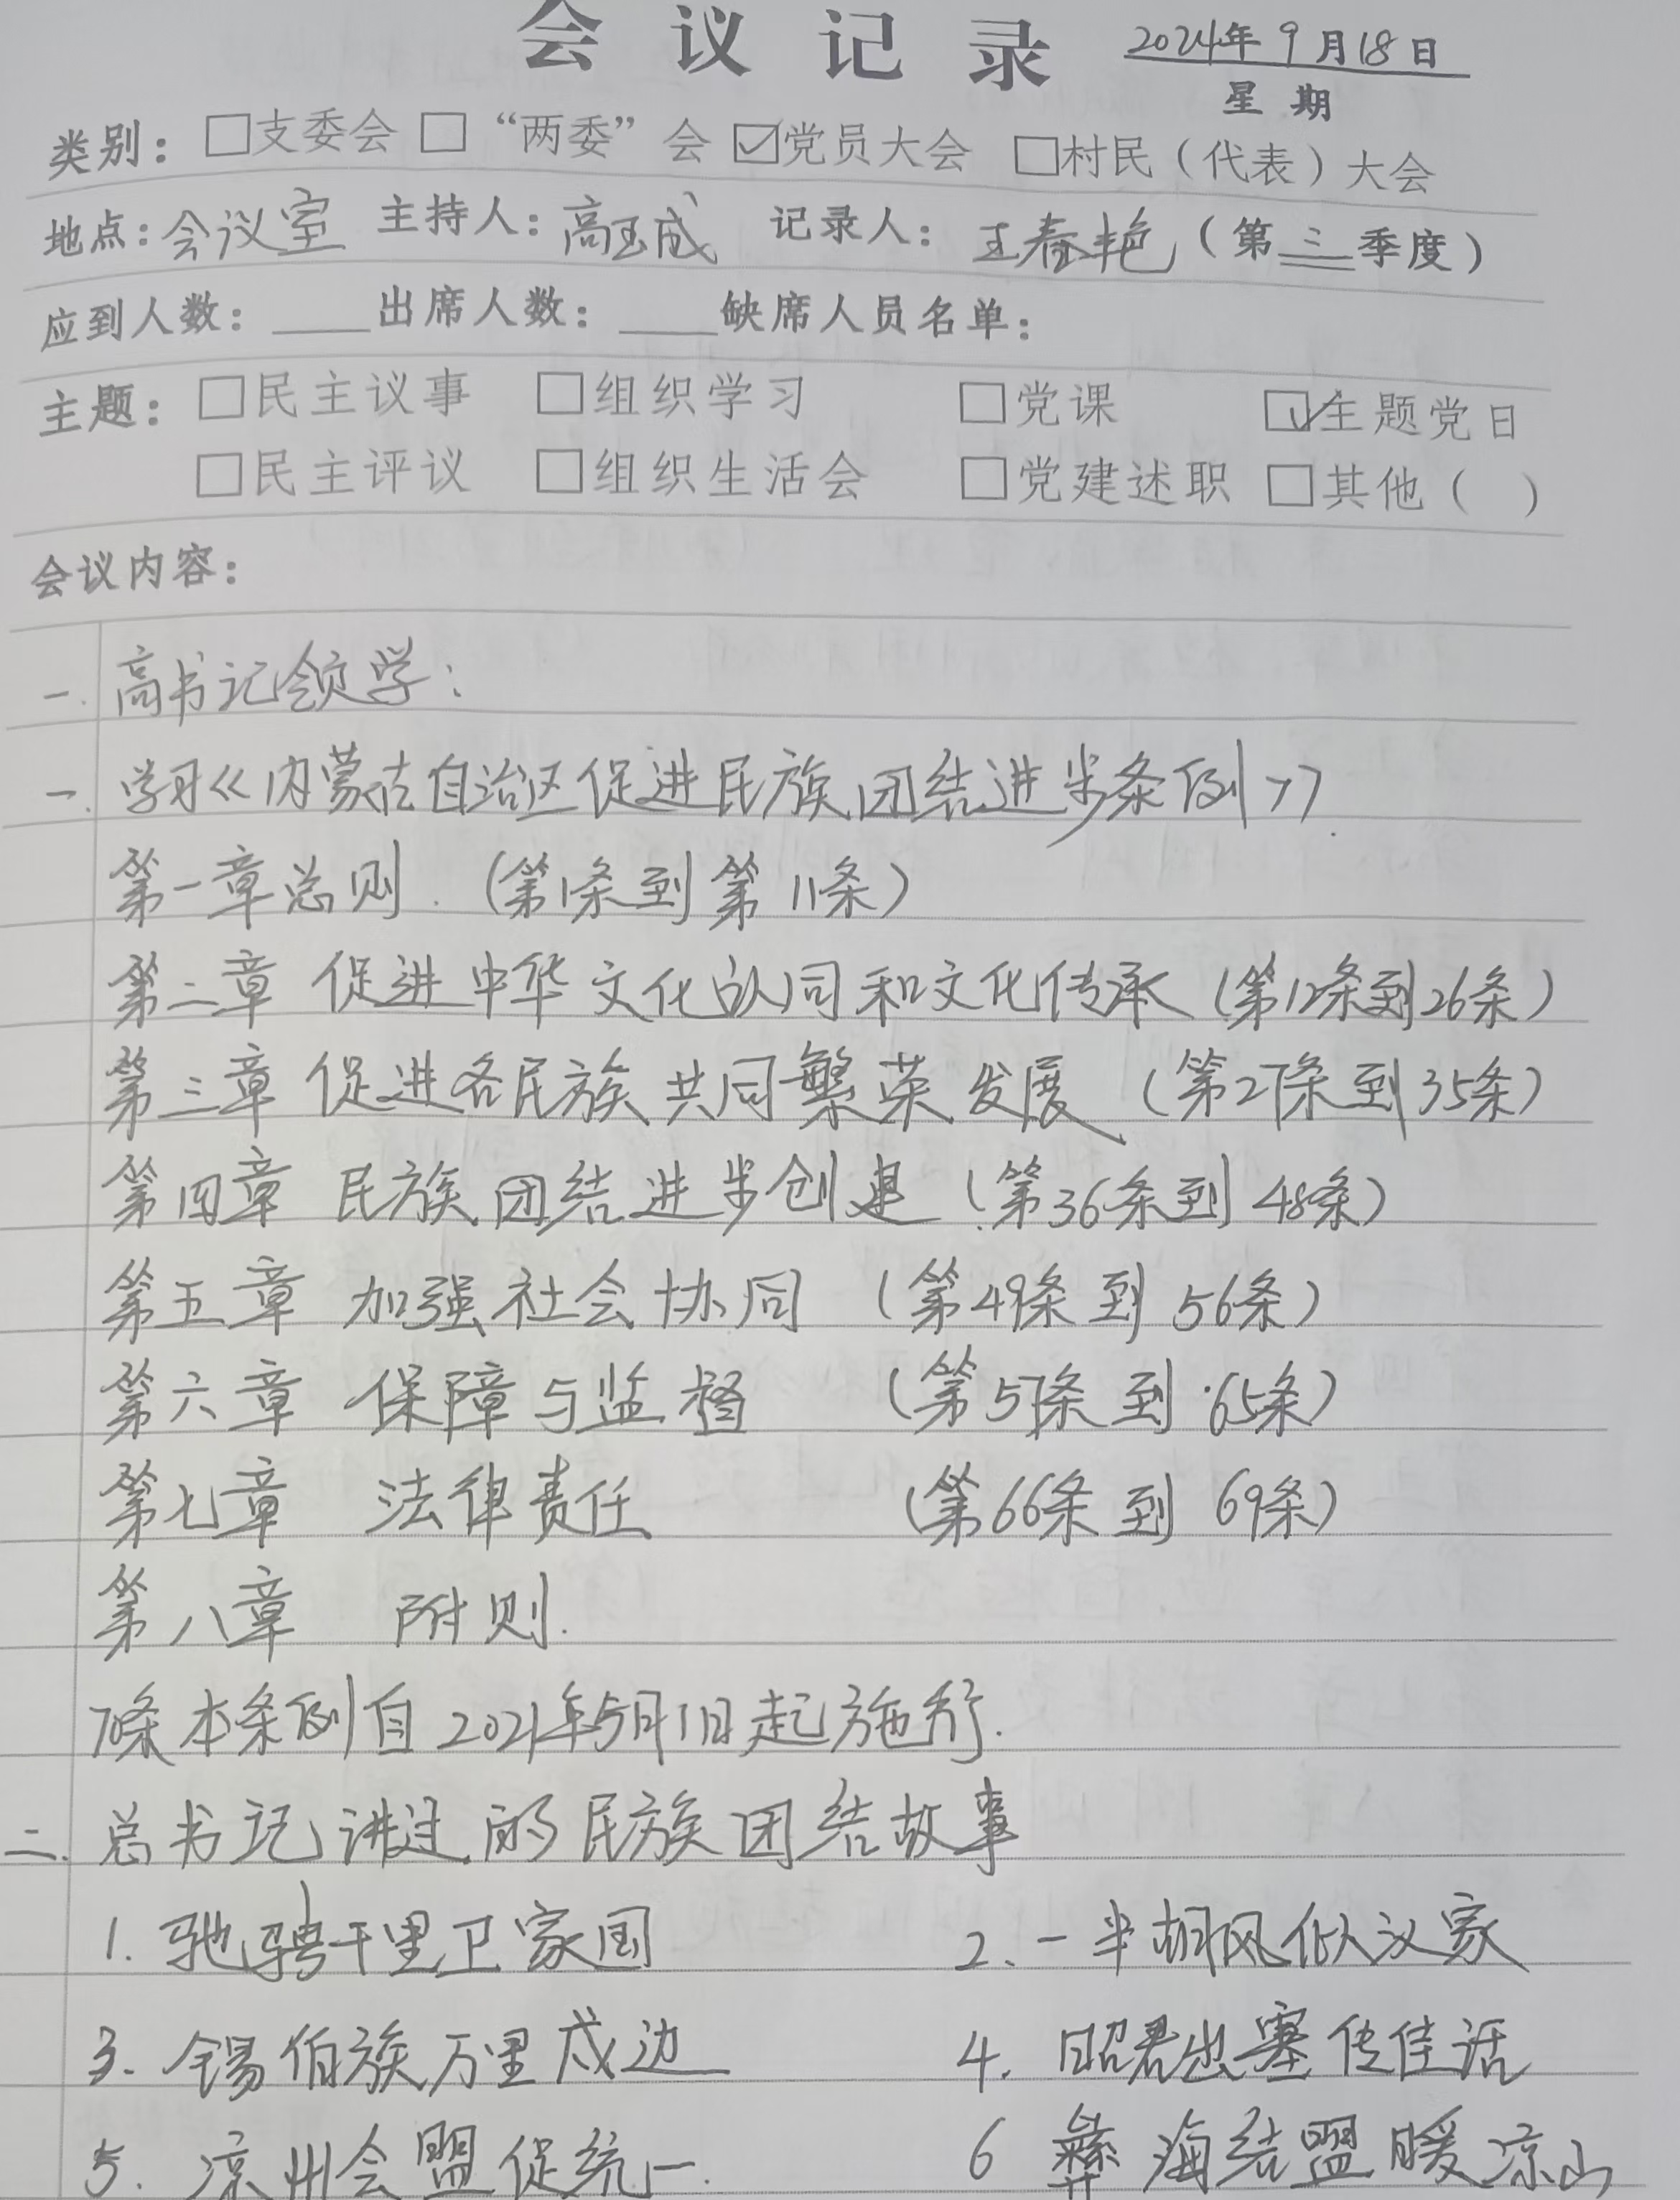 会议记录 2024年9月18日
星期
类别：□支委会 □“两委”会 ☑党员大会 □村民（代表）大会
地点：会议室 主持人：高玉成 记录人：王春艳（第三季度）
应到人数：____出席人数：____缺席人员名单：
主题：□民主议事 □组织学习 □党课 ☑主题党日
□民主评议 □组织生活会 □党建述职 □其他（ ）
会议内容：
一. 高书记领学：
一. 学习《内蒙古自治区促进民族团结进步条例》.
第一章总则.（第1条到第11条）
第二章 促进中华文化认同和文化传承（第12条到26条）
第三章 促进各民族共同繁荣发展（第27条到35条）
第四章 民族团结进步创建（第36条到48条）
第五章 加强社会协同（第49条到56条）
第六章 保障与监督（第57条到65条）
第七章 法律责任（第66条到69条）
第八章 附则.
70条本条例自2021年5月1日起施行.
二. 总书记讲过的民族团结故事
1. 驰骋千里卫家国 2、一半胡风似汉家
3. 锡伯族万里戍边 4. 昭君出塞传佳话
5. 凉州会盟促统一. 6 彝海结盟暖凉山